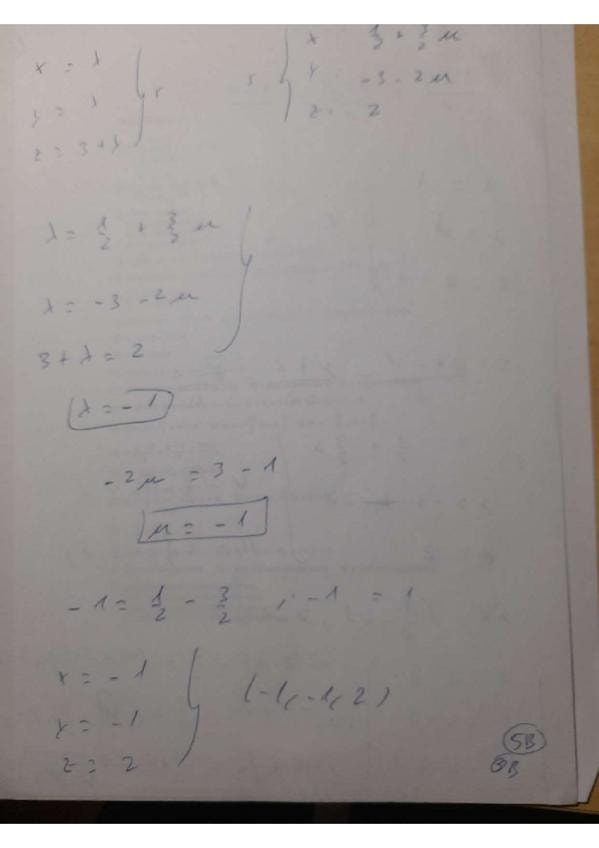 x = λ
y = λ
z = 3 + λ
} r
s { x 1/2 + 3/2 μ
y - 3 - 2μ
z - 2
λ = 1/2 + 3/2 μ
λ = - 3 - 2μ
3 + λ = 2
λ = - 1
- 2μ = 3 - 1
μ = - 1
- 1 = 1/2 - 3/2 ; - 1 = 1
x = - 1
y = - 1
z = 2
} (-1, -1, 2)
5B